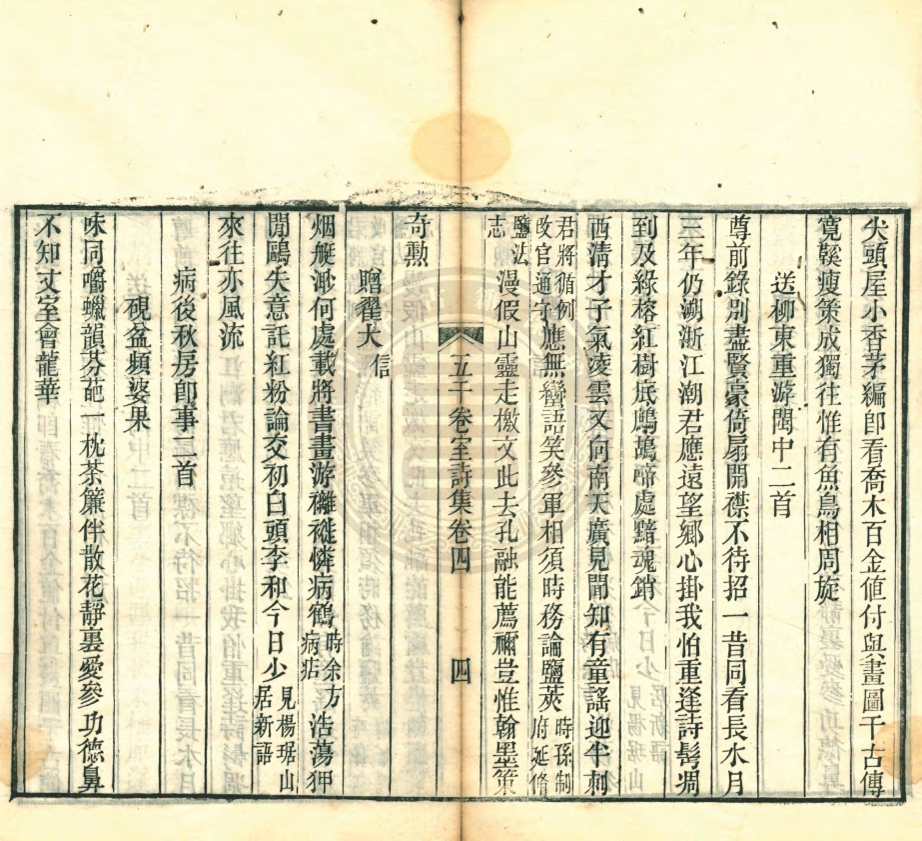 尖頭屋小香茅編卽看喬木百金値付與畫圖千古傳
寬鞵瘦策成獨往惟有魚鳥相周旋
送柳東重游閩中二首
尊前錄別盡賢豪倚扇開襟不待招一昔同看長水月
三年仍溯浙江潮君應遠望鄉心掛我怕重逢詩髩凋
到及綠榕紅樹底鷓鴣啼處黯魂銷
西淸才子氣凌雲又向南天廣見聞知有童謠迎半刺
君將循例改官通守應無蠻語笑參軍相須時務論鹽莢時孫制府延脩
鹽法志漫假山靈走檄文此去孔融能薦禰豈惟翰墨策
奇勲
五千卷室詩集卷四
四
贈翟大信
烟艇渺何處載將書畫游襳褷憐病鶴時余方病痁浩蕩狎
閒鷗失意託紅粉論交初白頭李和今日少見楊琚山居新語
來往亦風流
病後秋房卽事二首
硯盆頻婆果
味同嚼蠟韻芬葩一枕茶簾伴散花靜裏愛參功德鼻
不知丈室會龍華